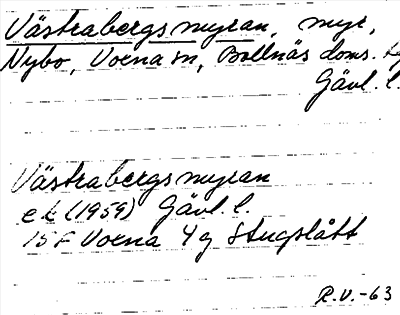 Västrabergsmyran, myr,
Nybo, Voxna sn, Bollnäs doms.
Gävl. l.
Västrabergsmyran
ek (1959) Gävl. l.
15F Voxna 4g Stugslått
R.V.-63